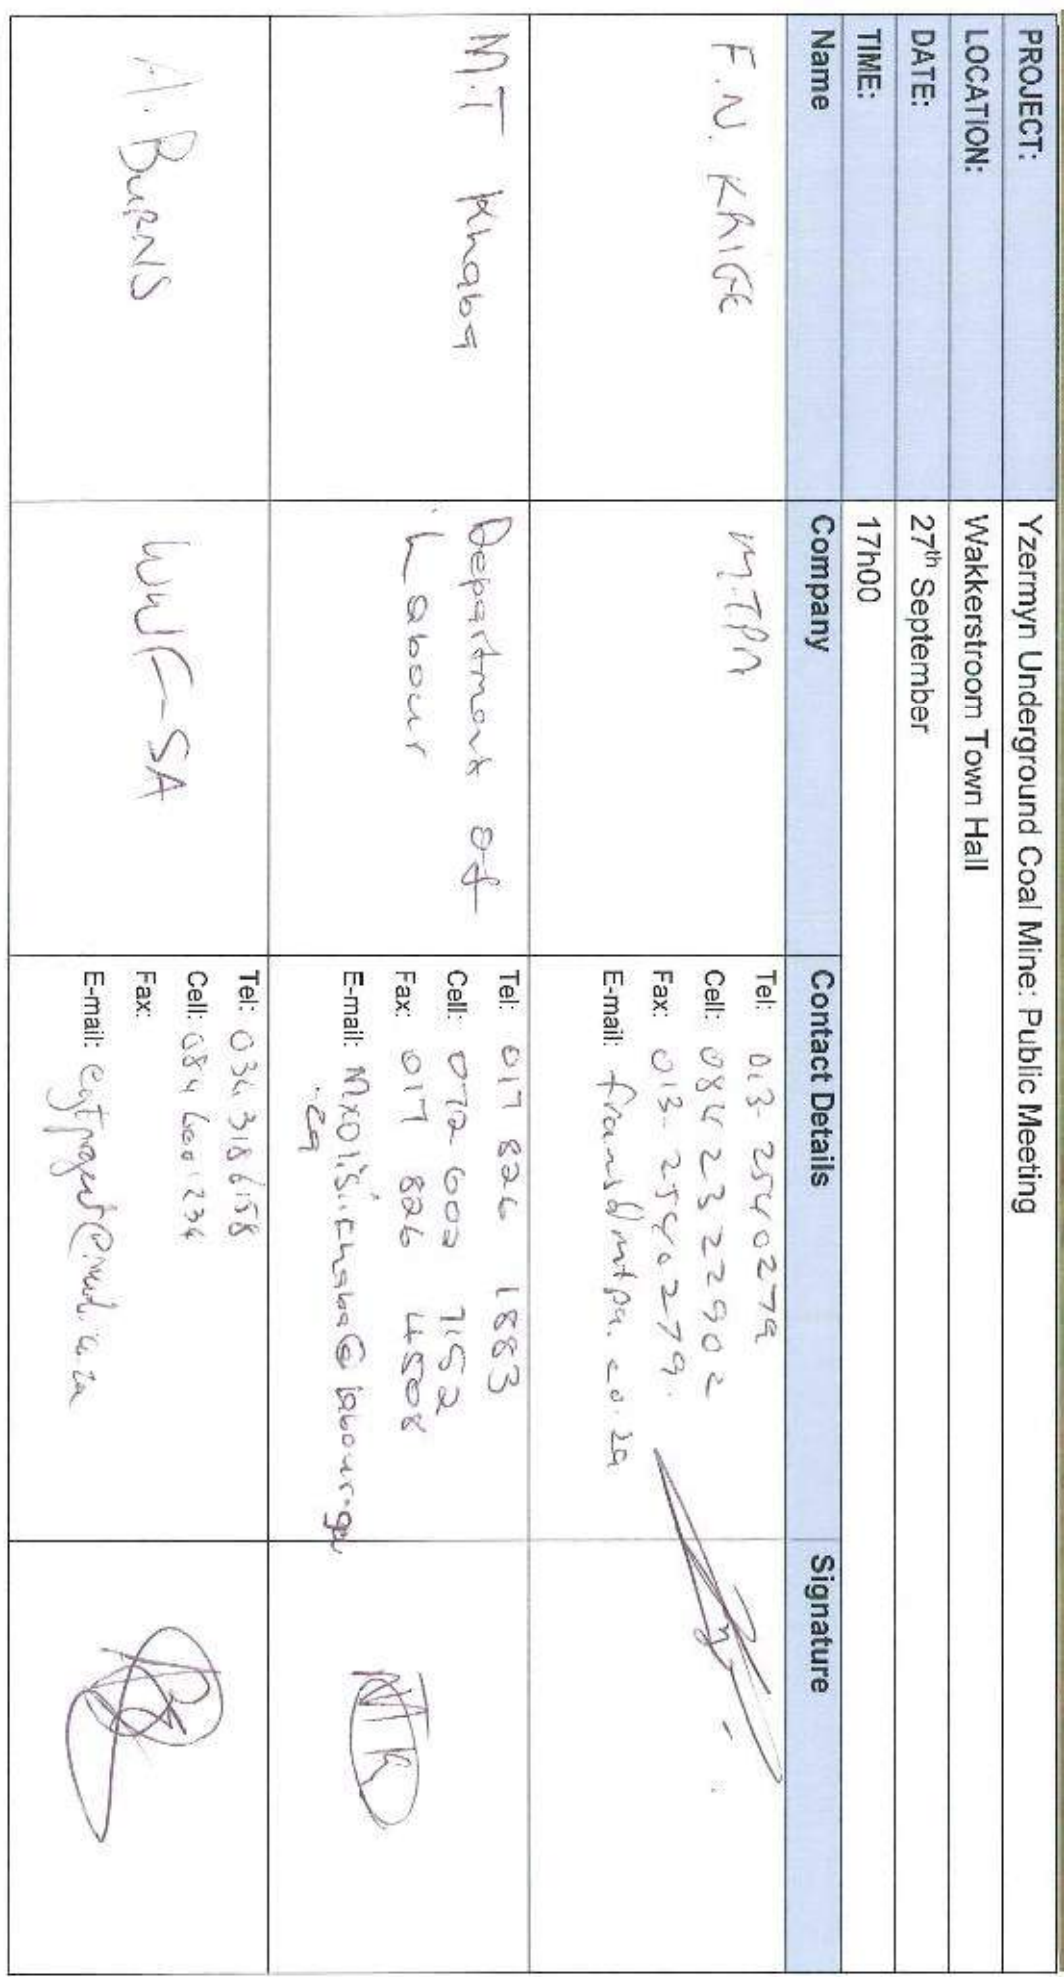 PROJECT: Yzermyn Underground Coal Mine: Public Meeting
LOCATION: Wakkerstroom Town Hall
DATE: 27th September
TIME: 17h00
Name Company Contact Details Signature
F.N. KRIGE M.T.P.A
Tel: 013-2540279
Cell: 084 23 22902
Fax: 013-2540279.
E-mail: frans@mtpa.co.za
M.T Khaba Department of
Labour
Tel: 017 826 1883
Cell: 072 600 7152
Fax: 017 826 4508
E-mail: Mxolisi.Khaba@labour.gov
.za
MTK
A. BURNS WWF-SA
Tel: 034 3186158
Cell: 084 6001234
Fax:
E-mail: